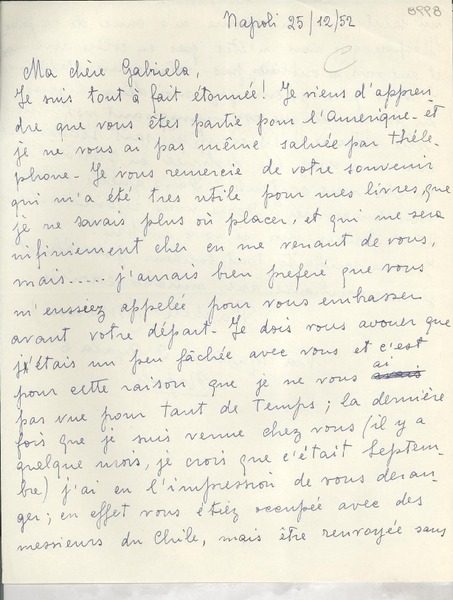 8998
Napoli 25/12/52
C
Ma chère Gabriela,
Je suis tout à fait étonnée! Je viens d'appren
dre que vous êtes partie pour l'Amerique - et
je ne vous ai pas même saluée par théle-
phone - Je vous remercie de votre souvenir
qui m'a été tres utile pour mes livres, que
je ne savais plus où placer, et qui me sera
infiniement cher en me venant de vous,
mais..... j'aurais bien preferé que vous
m'eussiez appelée pour vous embrasser
avant votre départ - Je dois vous avouer que
j'étais un peu fâchée avec vous et c'est
pour cette raison que je ne vous ai
pas vue pour tant de temps; la dernière
fois que je suis venue chez vous (il y a
quelque mois, je crois que c'était Septem-
bre) j'ai eu l'impression de vous deran-
ger; en effet vous étiez occupée avec des
messieurs du Chile, mais être renvoyée sans